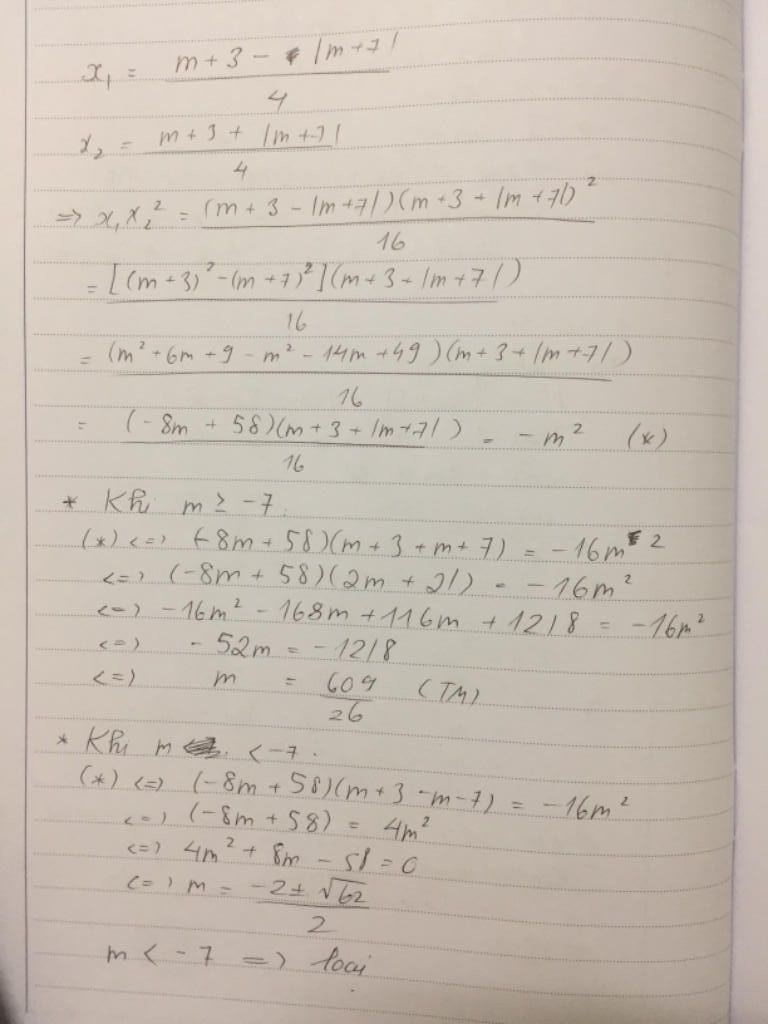 x₁ = (m + 3 - |m + 7|) / 4
x₂ = (m + 3 + |m + 7|) / 4
=> x₁x₂² = (m + 3 - |m + 7|)(m + 3 + |m + 7|)² / 16
= [(m + 3)² - (m + 7)²](m + 3 + |m + 7|) / 16
= (m² + 6m + 9 - m² - 14m + 49)(m + 3 + |m + 7|) / 16
= (-8m + 58)(m + 3 + |m + 7|) / 16 = -m² (*)
* Khi m ≥ -7.
(*) <=> (-8m + 58)(m + 3 + m + 7) = -16m²
<=> (-8m + 58)(2m + 21) = -16m²
<=> -16m² - 168m + 116m + 1218 = -16m²
<=> -52m = -1218
<=> m = 609 / 26 (TM)
* Khi m < -7.
(*) <=> (-8m + 58)(m + 3 - m - 7) = -16m²
<=> (-8m + 58) = 4m²
<=> 4m² + 8m - 58 = 0
<=> m = (-2 ± √62) / 2
m < -7 => loại